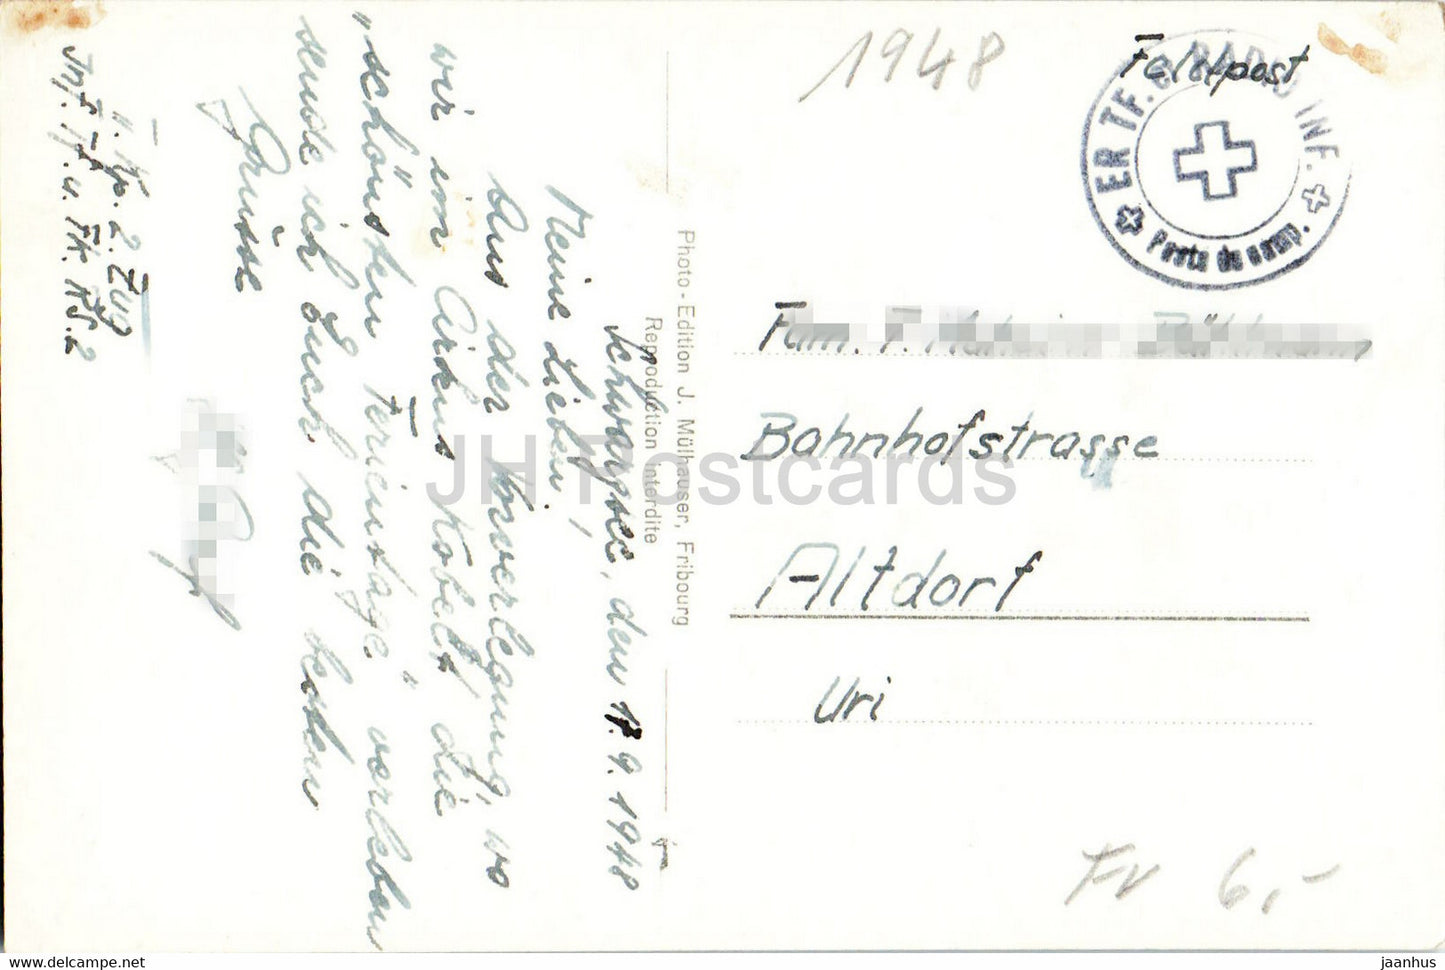 1948
Feldpost
ER TF. RAD INF.
Poste de camp.
Fam. F.
Bahnhofstrasse
Altdorf
Uri
Fr 6,-
Photo-Edition J. Mülhauser, Fribourg
Reproduction interdite
Schwarzsee, den 17.9.1948
Meine Lieben!
Aus der Verlegung, wo
wir im Cirkus Kobelt die
"schönsten Ferientage" verleben
sende ich Euch die besten
Grüsse
II. Kp. 2. Zug
Inf. Tf. u. Fk. RS. 2
JH Postcards
hippostcard.com
jaanhus